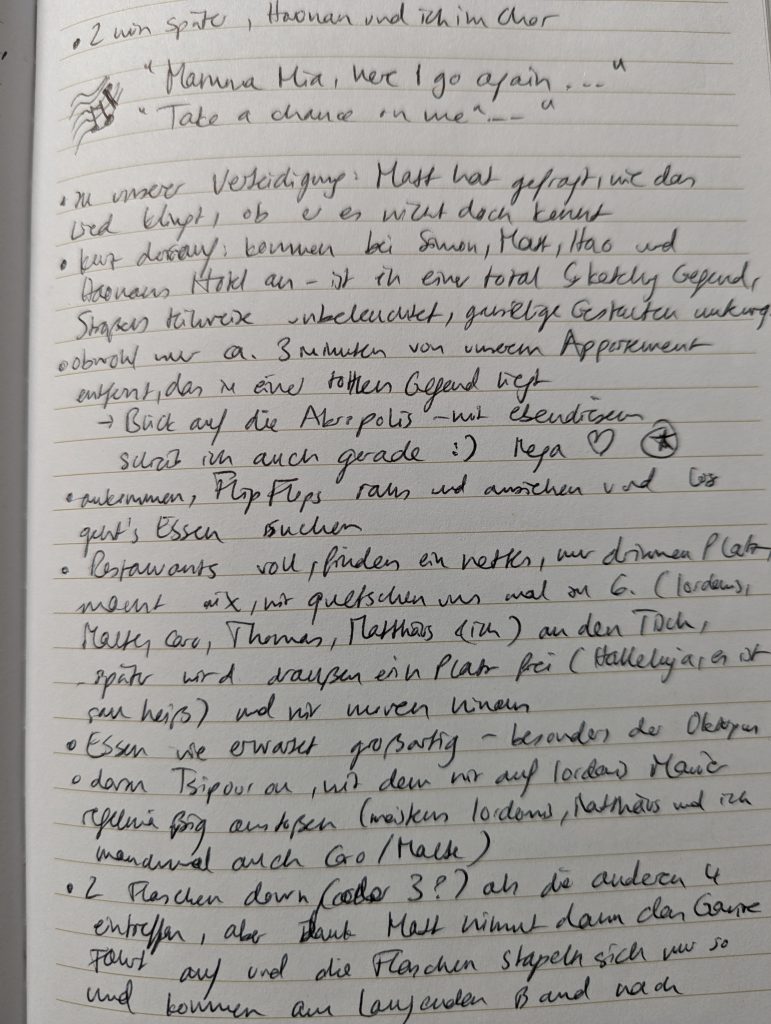 • 2 min später, Haonan und ich im Chor
"Mamma Mia, here I go again..."
"Take a chance on me"..."
• zu unserer Verteidigung: Matt hat gefragt, wie das
Lied klingt, ob er es nicht doch kennt
• kurz darauf: kommen bei Simon, Matt, Hao und
Haonans Hotel an - ist in einer total sketchy Gegend,
Straßen teilweise unbeleuchtet, gruselige Gestalten
• obwohl nur ca. 3 Minuten von unserem Appartement
entfernt, das in einer tollen Gegend liegt
→ Blick auf die Akropolis - mit ebendiesem
schreib ich auch gerade :) Mega ♡
• ankommen, Flip Flops raus und anziehen und los
geht's Essen suchen
• Restaurants voll, finden ein nettes, nur drinnen Platz,
macht nix, wir quetschen uns mal zu 6. (Iordanis,
Malte, Caro, Thomas, Matthäus, ich) an den Tisch,
später wird draußen ein Platz frei (Halleluja, es ist
sau heiß) und wir
• Essen wie erwartet großartig - besonders der Oktopus
• dann Tsipouro an, mit dem wir auf Iordanis
regelmäßig anstoßen (meistens Iordanis, Matthäus und ich
manchmal auch Caro/Malte)
• 2 Flaschen down (oder 3?) als die anderen 4
eintreffen, aber dank Matt nimmt dann das Ganze
Fahrt auf und die Flaschen stapeln sich nur so
und kommen am laufenden Band nach